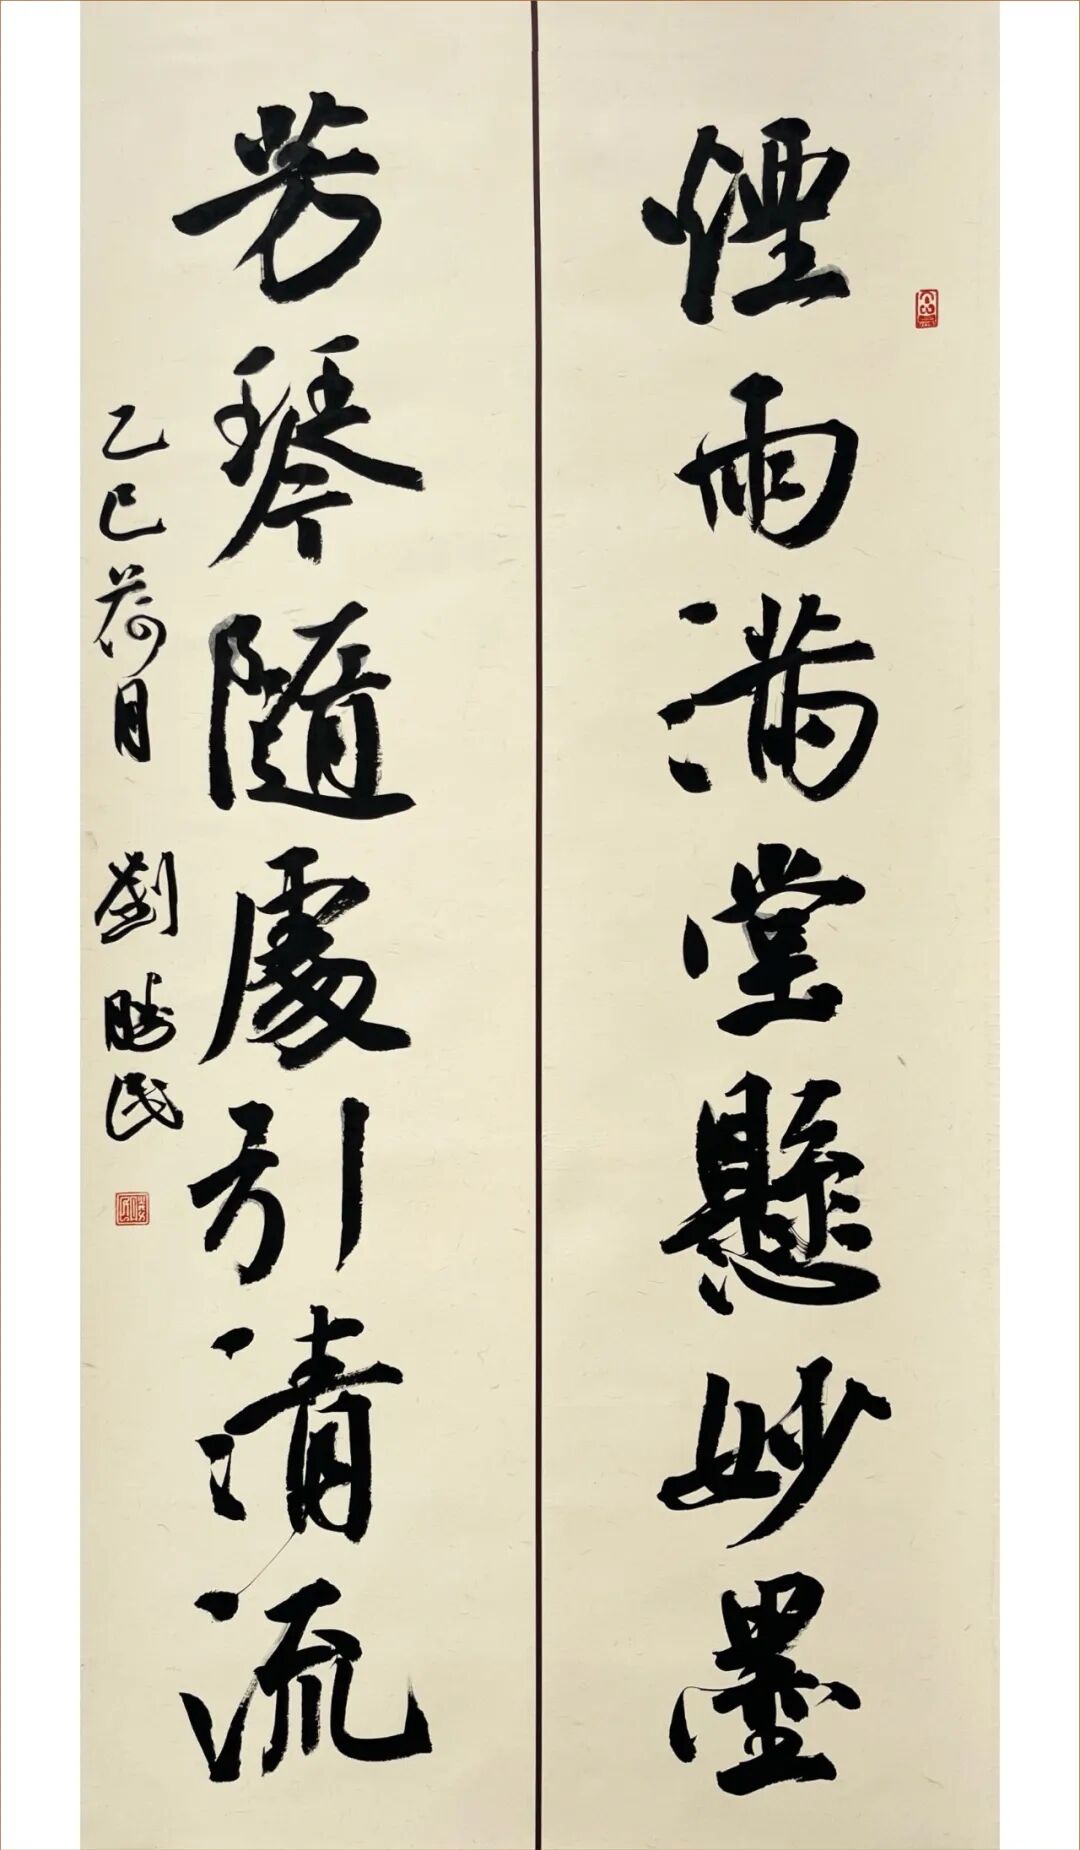 煙雨満堂懸妙墨
芳琴随處引清流
乙巳荷月
劉勝民